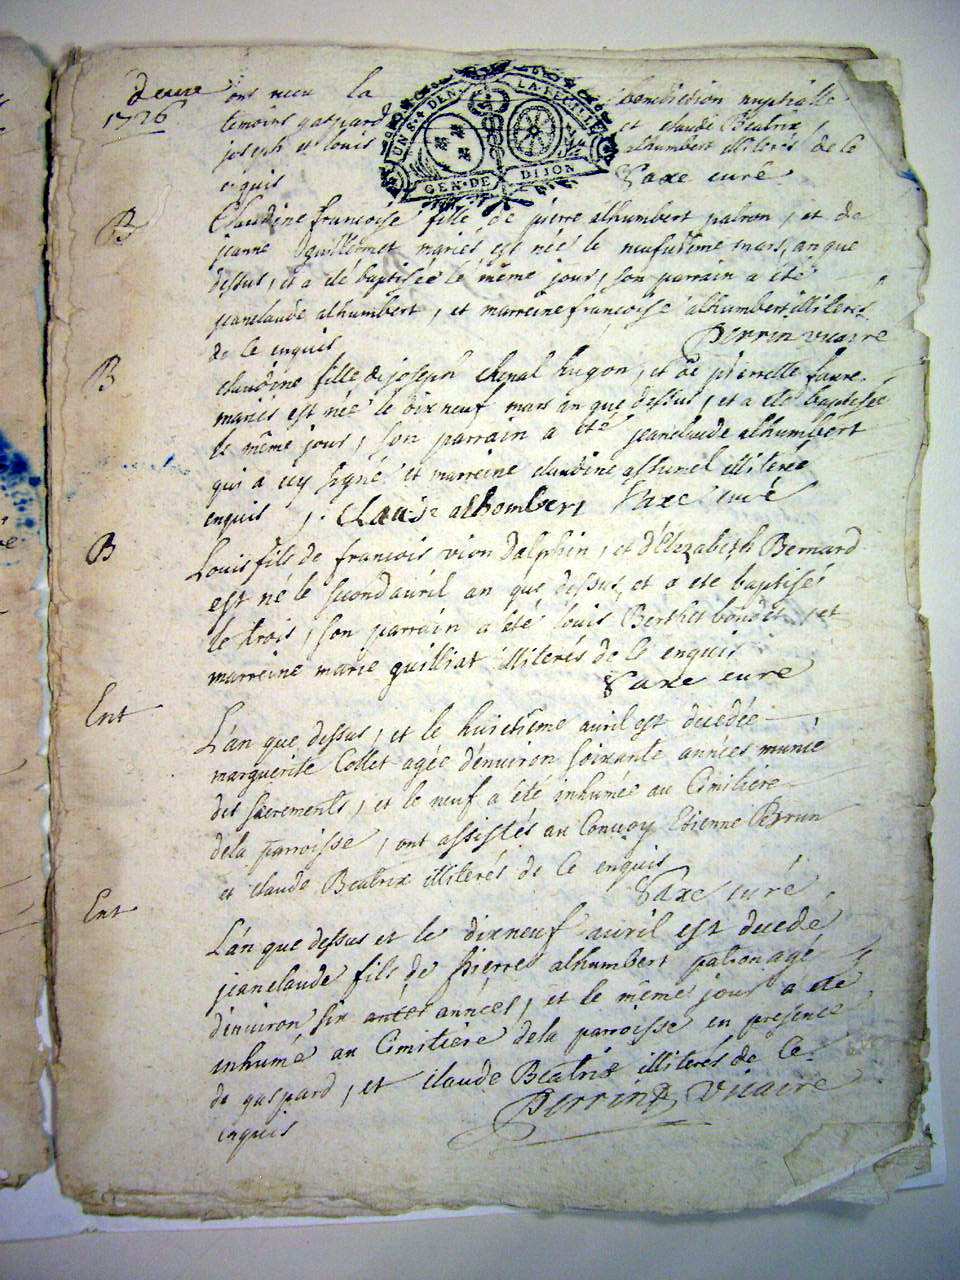 1726
ont receu la benediction nuptialle
temoins gaspard et claude Beatrix,
joseph et louis alhumbert illiterés de ce
enquis Saxe curé
UN S. 4 DEN. LA FEUILLE
GEN. DE DIJON
B
Claudine françoise fille de pierre alhumbert patron, et de
jeanne guillermet mariés est née le neufvième mars, an que
dessus, et a été baptisée le même jour, son parrain a été
jeanclaude alhumbert, et marreine françoise alhumbert illiterés
de ce enquis Perrin vicaire
B
claudine fille de joseph chenal hugon, et de pierrette favre
mariés est née le dixneuf mars an que dessus, et a été baptisée
le même jour, son parrain a été jeanclaude alhumbert
qui a icy signé et marreine claudine illiterée
enquis, alhombert Saxe curé
B
Louis fils de françois vion Dalphin, et d'Elizabeth Bernard
est né le second avril an que dessus, et a eté baptisés
le trois, son parrain a été louis Berthet bondet, et
marreine marie guilliat illiterés de ce enquis
Saxe curé
Ent
L'an que dessus, et le huictième avril est decedée
marguerite Collet agée d'environ soixante années munie
des sacrements, et le neuf a été inhumée au Cimitière
dela parroisse, ont assistés au Convoy Etienne Brun
et claude Beatrix illiterés de ce enquis
Saxe curé
Ent
L'an que dessus et le dixneuf avril est decedé
jeanclaude fils de pierre alhumbert patron agé
d'environ six années, et le même jour a eté
inhumé au Cimitière dela parroisse en presence
de gaspard, et claude Beatrix illiterés de ce
enquis Perrin Vicaire